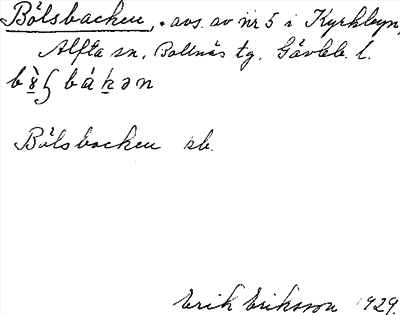 Bölsbacken, avs. av nr 5 i Kyrkbyn,
Alfta sn, Bollnäs tg, Gävleb. l.
Bölsbacken sb.
Erik Eriksson 1929.